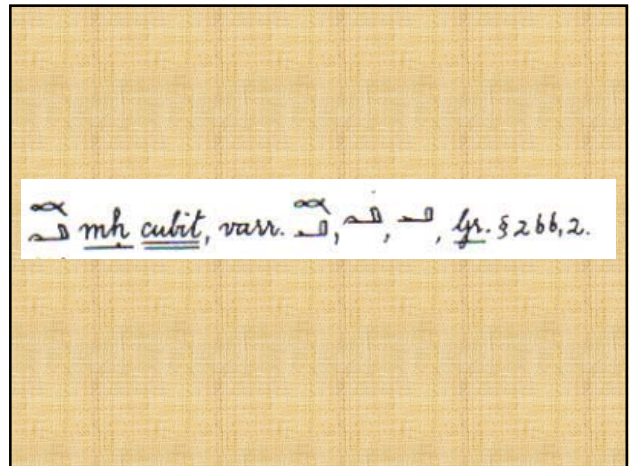 mḥ cubit, varr. , , , Gr. § 266, 2.